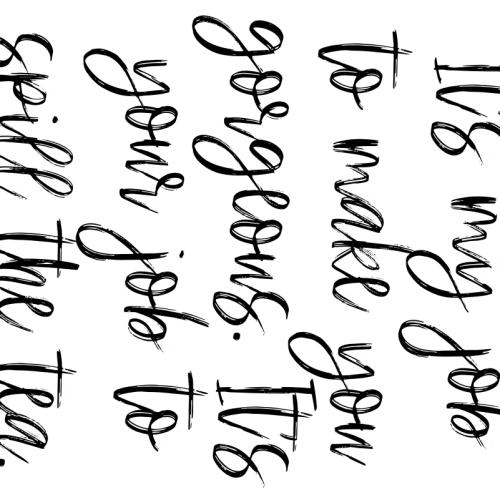 It's my job
to make you
gorgeous. It's
your job to
spill the tea.